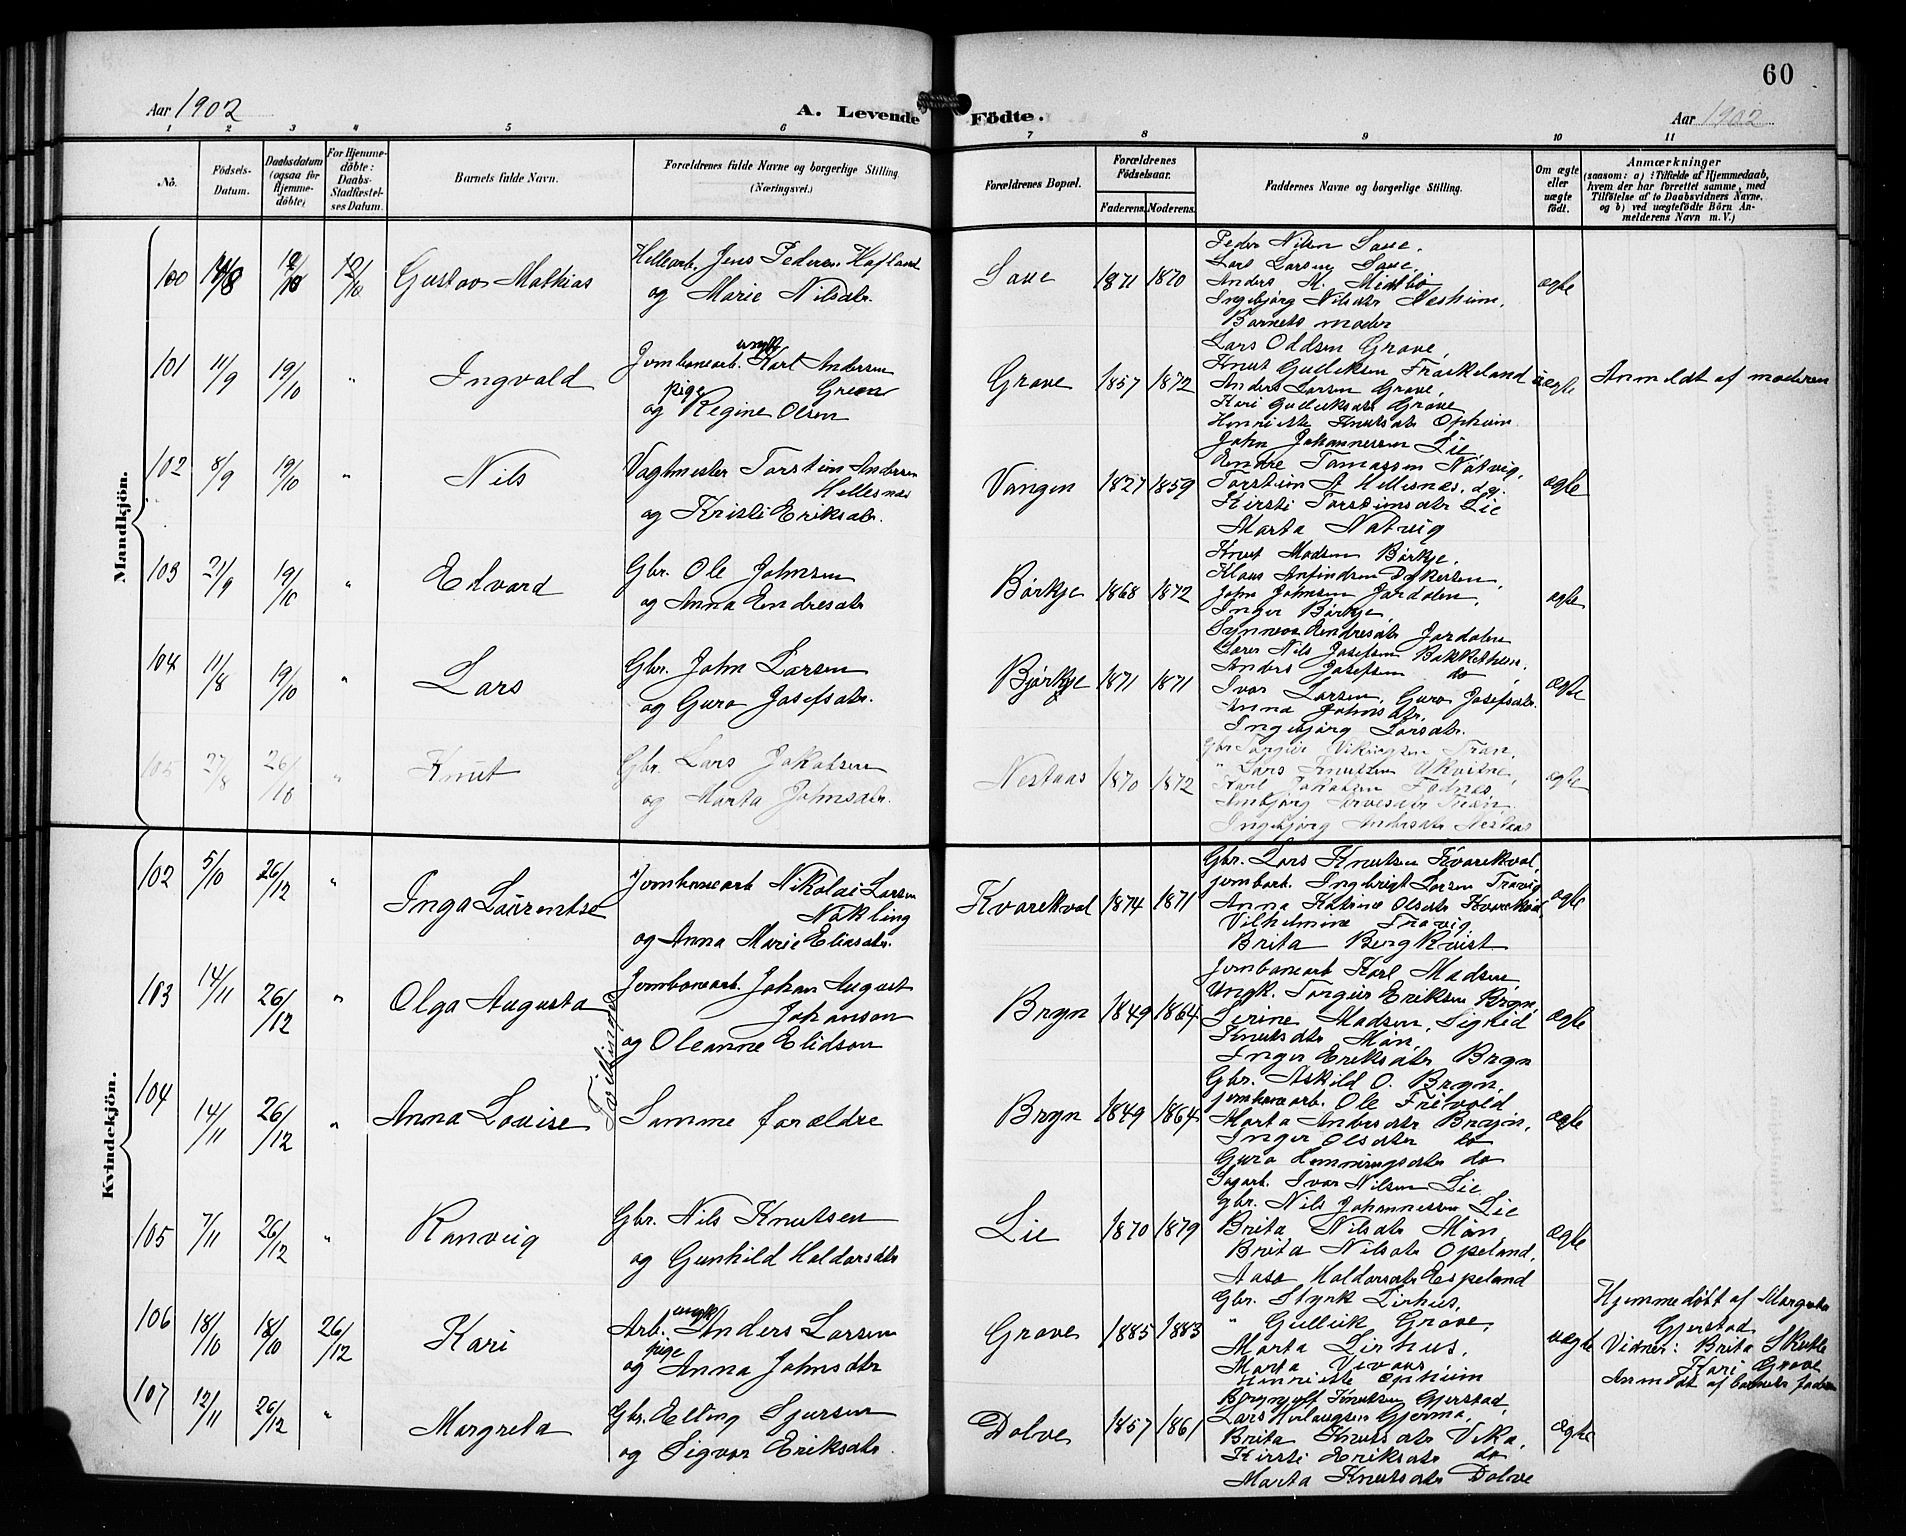 60
Aar 1902
A. Levende Födte.
Aar 1902
1 2 3 4 5 6 7 8 9 10 11
No.
Födsels-Datum.
Daabsdatum (ogsaa for Hjemme-döbte)
For Hjemme-döbte: Daabs-Stadfæstel-ses Datum.
Barnets fulde Navn.
Forældrenes fulde Navne og borgerlige Stilling.
(Næringsvei.)
Forældrenes Bopæl.
Forældrenes Födselsaar.
Faderens. Moderens.
Faddernes Navne og borgerlige Stilling.
Om ægte eller uægte födt.
Anmærkninger
(saasom: a) i Tilfælde af Hjemmedaab,
hvem der har forrettet samme, med
Tilföielse af to Daabsvidners Navne,
og b) ved uægtefödte Börn An-
melderens Navn m. V.)
Mandkjön.
100 14/8 19/10 19/10 Gustav Mathias
Hellearb. Jens Pedersen Hafland
og Marie Nilsdtr.
Saue 1871 1870
Peder Nilsen Saue,
Lars Larsen Saue,
Anders M. Midtbö
Ingebjörg Nilsdtr Nesheim,
Barnets moder
ægte
101 11/9 19/10 " Ingvald
Jernbanearb. ungk. Karl Andersen
Green
pige
og Regine Olsen
Grove 1857 1872
Lars Oddsen Grove,
Knut Gulleksen Trækeland
Anders Larsen Grove,
Kari Gulleiksdtr Grove
Henriette Knutsdtr Opheim
uægte
Anmeldt af moderen
102 8/9 19/10 " Nils
Vagtmester Torstein Andersen
Hellesnes
og Kristi Eriksdtr.
Vangen 1827 1859
John Johannessen Lie,
Endre Tomassen Nàtvig,
Torstein A Hellesnes, dy.
Kirsti Torsteinsdtr Lie
Marta Natvig
ægte
103 21/9 19/10 " Edvard
Gbr. Ole Johnsen
og Anna Endresdtr
Börkje 1868 1872
Knut Madsen Börkje,
Klaus Anfindsen Dykesten,
John Johnsen Jordalen,
Inger Börkje
Synneva Endresdtr Jordalen
ægte
104 11/8 19/10 " Lars
Gbr. John Larsen
og Guro Josefsdtr.
Björkje 1871 1871
Lærer Nils Josefsen Bakkethun,
Anders Josefsen do,
Ivar Larsen, Guro Josefsdtr.
Anna Johnsdtr,
Ingebjörg Larsdtr.
ægte
105 27/8 26/10 " Knut
Gbr. Lars Jakobsen
og Marta Johnsdtr.
Nestaas 1870 1872
Gbr Torgeir Vikingsen Traa,
" Lars Knutsen Ukvitne,
Karl Jakobsen Fodnes,
Ingebjörg Andersdtr Nestaas
ægte
Kvindekjön.
102 5/10 26/12 " Inga Laurentse
Jernbanearb Nikolai Larsen
Nökling
og Anna Marie Eliasdtr.
Kvarekval 1874 1871
Gbr. Lars Knutsen Kvarekval,
jernbarb. Ingebrigt Larsen Travig
Anna Katrine Olsdtr Kvarekval,
Vilhelmine Travig
Brita Bergkvist
ægte
103 14/11 26/12 " Olga Augusta
Tvillinger
Jernbanearb. Johan August
Johanson
og Oleanne Elidson
Bryn 1849 1864
Jernbanearb Karl Madsen
Ungk. Torgeir Eriksen Bryn,
Serine Madsen, Sigrid
Knutsdtr Mön,
Inger Eriksdtr Bryn
ægte
104 14/11 26/12 " Anna Lovise
Samme forældre
Bryn 1849 1864
Gbr. Askild O. Bryn,
jernbanearb. Ole Frivold
Marta Andersdtr Bryn,
Inger Olsdtr do
Guro Henningsdtr do
ægte
105 7/11 26/12 " Ranveig
Gbr. Nils Knutsen
og Gunhild Haldorsdtr
Lie 1870 1879
Dagarb. Ivar Nilsen Lie
gbr. Nils Johannessen Lie
Brita Nilsdtr Møn,
Brita Nilsdtr Opeland,
Aasa Haldorsdtr Espeland
ægte
106 18/10 18/10 26/12 Kari
Arb. ungk Anders Larsen
pige
og Anna Johnsdtr
Grove 1885 1883
Gbr. Styrk Lirhus,
" Gulleik Grove,
Marta Lirhus,
Marta Vivaas
Henriette Opheim
uægte
Hjemmedöbt af Margreta
Gjerstad
Vidner: Brita Skutle
Kari Grove
Anmeldt af barnets fader
107 12/11 26/12 " Margreta
Gbr. Elling Sjursen
og Sigvor Eriksdtr.
Dolve 1857 1861
Brynjulf Knutsen Gjerstad,
Lars Herlaugsen Gjerma,
Brita Knutsdtr Vika,
Kirsti Eriksdtr do
Marta Knutsdtr Dolve
ægte